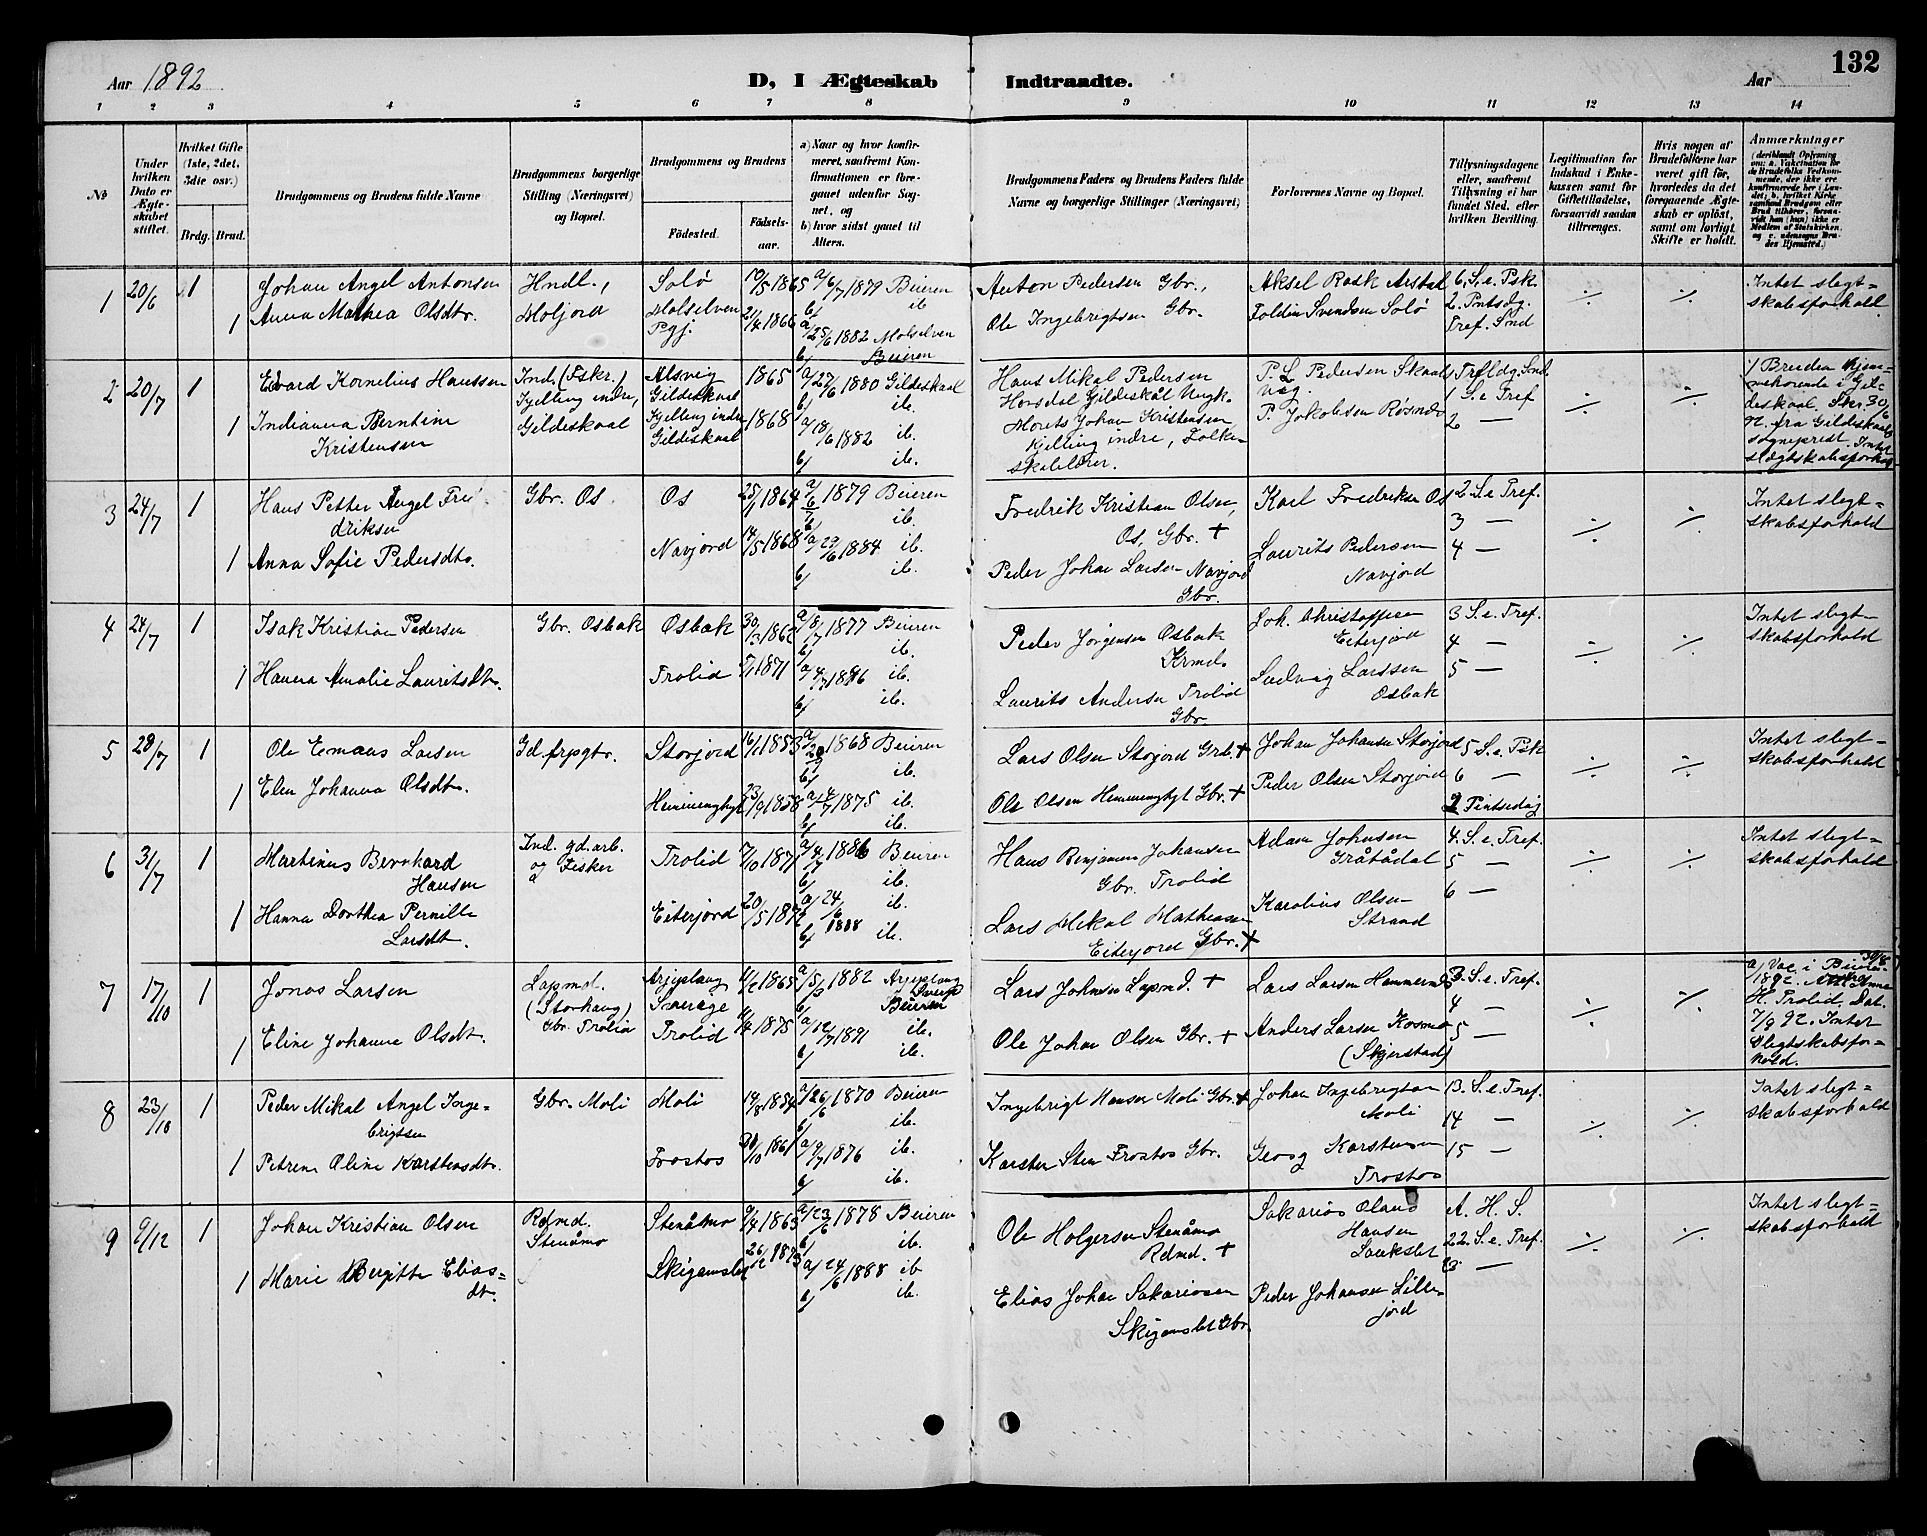 132
Aar 1892
D, I Ægteskab Indtraadte.
Aar
1 2 3 4 5 6 7 8 9 10 11 12 13 14
№
Under hvilken Dato er Ægteskabet stiftet.
Hvilket Gifte (1ste, 2det, 3die osv.)
Brdg. Brud.
Brudgommens og Brudens fulde Navne
Brudgommens borgerlige Stilling (Næringsvei) og Bopæl.
Brudgommens og Brudens
Födested.
Födselsaar.
a) Naar og hvor konfirmeret, saafremt Konfirmationen er foregaaet udenfor Sognet, og
b) hvor sidst gaaet til Alters.
Brudgommens Faders og Brudens Faders fulde Navne og borgerlige Stillinger (Næringsvei)
Forlovernes Navne og Bopæl.
Tillysningsdagene eller, saafremt Tillysning ei har fundet Sted, efter hvilken Bevilling.
Legitimation for Indskud i Enkekassen samt for Giftetilladelse, forsaavidt saadan tiltrænges.
Hvis nogen af Brudefolkene har været gift för, hvorledes da det foregaaende Ægteskab er oplöst, samt om lovligt Skifte er holdt.
Anmærkninger
1 20/6 1 Johan Angel Antonsen Hndl., Solö 10/5 1865 a/ 6/7 1879 Beieren Anton Pedersen Gbr., Aksel Rask Arstad 6. S. e. Psk. ÷ ÷ Intet slegt=
1 Anna Mathea Olsdtr. Moljord Molselven Pgj. 21/4 1866 b/ ib a/ 25/6 1882 Molselven b/ Beieren Ole Ingebrigtsen Gbr. Foldin Svendsen Solö 2. Pntsdg. Tref. Snd skabsforhold.
2 20/7 1 Edvard Kornelius Hanssen Ind. (Fskr.) Kjelling indre, Gildeskaal Alsvig Gildeskaal 1865 a/ 27/6 1880 Gildeskaal b/ ib. Hans Mikal Pedersen Horsdal Gildeskål P. L. Pedersen Skaalsveg. Trfldg. Snd. 1 S. e. Tref ÷ ÷
1 Indianna Berntine Kristensen Kjelling indre Gildeskaal 1868 a/ 18/6 1882 ib. b/ ib. Morets Johan Kristensen Kjelling indre, Folkeskolelærer. P. Jakobsen Røsnæs 2 — Bruden hjemmehörende i Gildeskaal. Skr. 30/6 92 fra Gildeskaals sognepræst. Intet slegtskabsforhold
3 24/7 1 Hans Petter Angel Fredriksen Gbr. Os Os 25/1 1864 a/ 6/7 1879 Beieren b/ ib. Fredrik Kristian Olsen, Os, Gbr. + Karl Fredriksen Os 2. S. e Tref. 3 — ÷ ÷ Intet slegt=
1 Anna Sofie Pedersdtr. Navjord 14/5 1868 a/ 29/6 1884 ib. b/ ib. Peder Johan Larsen Navjord Gbr. Laurits Pedersen Navjord 4 — skabsforhold
4 24/7 1 Isak Kristian Pedersen Gbr. Osbak Osbak 30/3 1862 a/ 8/7 1877 Beieren b/ ib. Peder Jörgensen Osbak Krmd. Joh. Christoffersen Eiterjord 3 S. e. Tref. 4 — ÷ ÷ Intet slegt=
1 Hanna Amalie Lauritsdtr. Trolid 5/1 1871 a/ 4/7 1886 ib. b/ ib. Laurits Andersen Trolid Gbr. Ludvig Larssen Osbak 5 — skabsforhold
5 28/7 1 Ole Emaus Larsen Gd.frpgtr. Storjord 16/1 1853 a/ 1868 Beieren b/ ib. Lars Olsen Storjord Grb. + Johan Johansen Storjord 5 S. e. Psk 6 — ÷ ÷ Intet slegt=
1 Elen Johanna Olsdtr. Hemminghyt 23/9 1858 a/ 4/7 1875 ib. b/ ib. Ole Olsen Hemminghyt Gbr. + Peder Olsen Storjord 2 Pintsedag skabsforhold
6 31/7 1 Martinus Bernhard Hansen Ind. gd.arb. og Fisker Trolid 7/10 1871 a/ 4/7 1886 Beieren b/ ib. Hans Benjamin Johansen Gbr. Trolid Adam Johnsen Gråtådal 4. S. e. Tref. 5 — ÷ ÷ Intet slegt=
1 Hanna Dorthea Pernille Larsdt. Eiterjord 20/5 1872 a/ 24/6 1888 ib. b/ ib. Lars Mikal Mathiassen Eiterjord Gbr. + Karolius Olsen Straad 6 — skabsforhold
7 17/10 1 Jonas Larsen Lapmd. (Storhaug) Gbr. Trolia Arjeplaug Sverige 1/2 1865 a/ 5/3 1882 Arjeplaug Sverige b/ Beieren Lars Johnsen Lapmd. + Lars Larsen Hammernæs 3. S. e. Tref. 4 — ÷ ÷ a/ Vac. i Beieren 30/8 1892.
1 Eline Johanne Olsdt. Trolid 11/4 1875 a/ 12/7 1891 ib. b/ ib. Ole Johan Olsen Gbr. + Anders Larsen Kosmo (Skjerstad) 5 — H. Trolid. Dat. 7/9 92. Intet slegtskabsforhold.
8 23/10 1 Peder Mikal Angel Ingebrigtsen Gbr. Moli Moli 14/8 1854 a/ 26/6 1870 Beieren b/ ib. Ingebrigt Hansen Moli Gbr. + Johan Ingebrigtsen Moli 13. S. e. Tref. 14 — ÷ ÷ Intet slegt=
1 Petrine Oline Karstensdtr. Trostos 30/10 1861 a/ 9/7 1876 ib. b/ ib. Karsten Sten Trostos Gbr. Georg Karstensen Trostos 15 — skabsforhold
9 9/12 1 Johan Kristian Olsen Rdmd. Stenåmo Stenåmo 9/4 1863 a/ 23/6 1878 Beieren b/ ib. Ole Holgersen Stenåmo Rdmd. + Sakarias Oland Hansen A. H. S. 22. S. e. Tref. ÷ ÷ Intet slegt=
1 Marie Birgitte Eliasdt. Skigamslet 26/12 1873 a/ 24/6 1888 ib b/ ib. Elias Johan Sakariasen Skigamslet Gbr. Peder Johansen Lillejord — skabsforhold